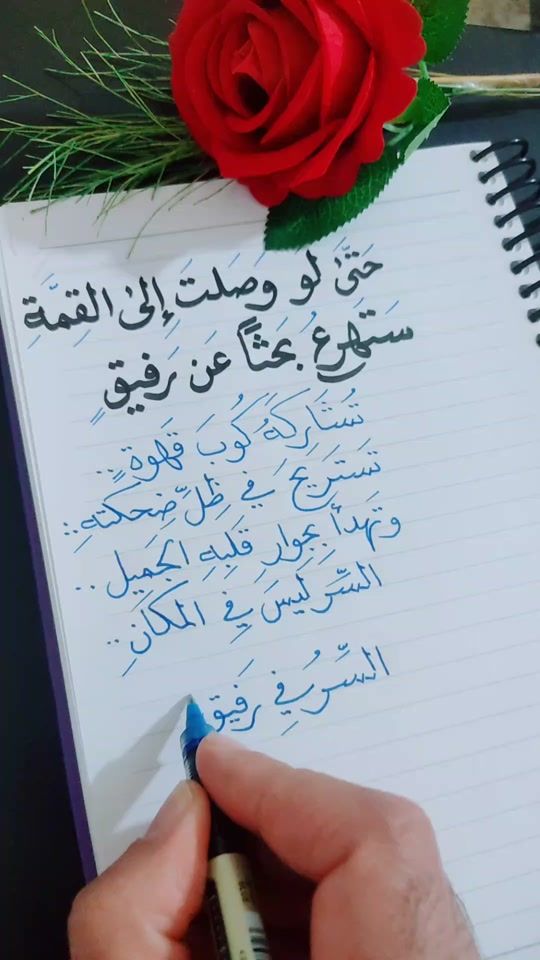 حَتَّىٰ لو وَصَلتَ إِلىٰ القِمَّةِ
سَتَهرَعُ بَحثاً عَن رَفيقٍ
تُشَارِكَهُ كُوبَ قَهوةٍ..
تَستَرِيحَ في ظِلِّ ضِحكتهِ..
وتَهدَأ بِجوارِ قَلبِهِ الجَمِيلِ..
السِّرّ لَيسَ فِي المَكَانِ..
السِّرُ فِي رَفيق